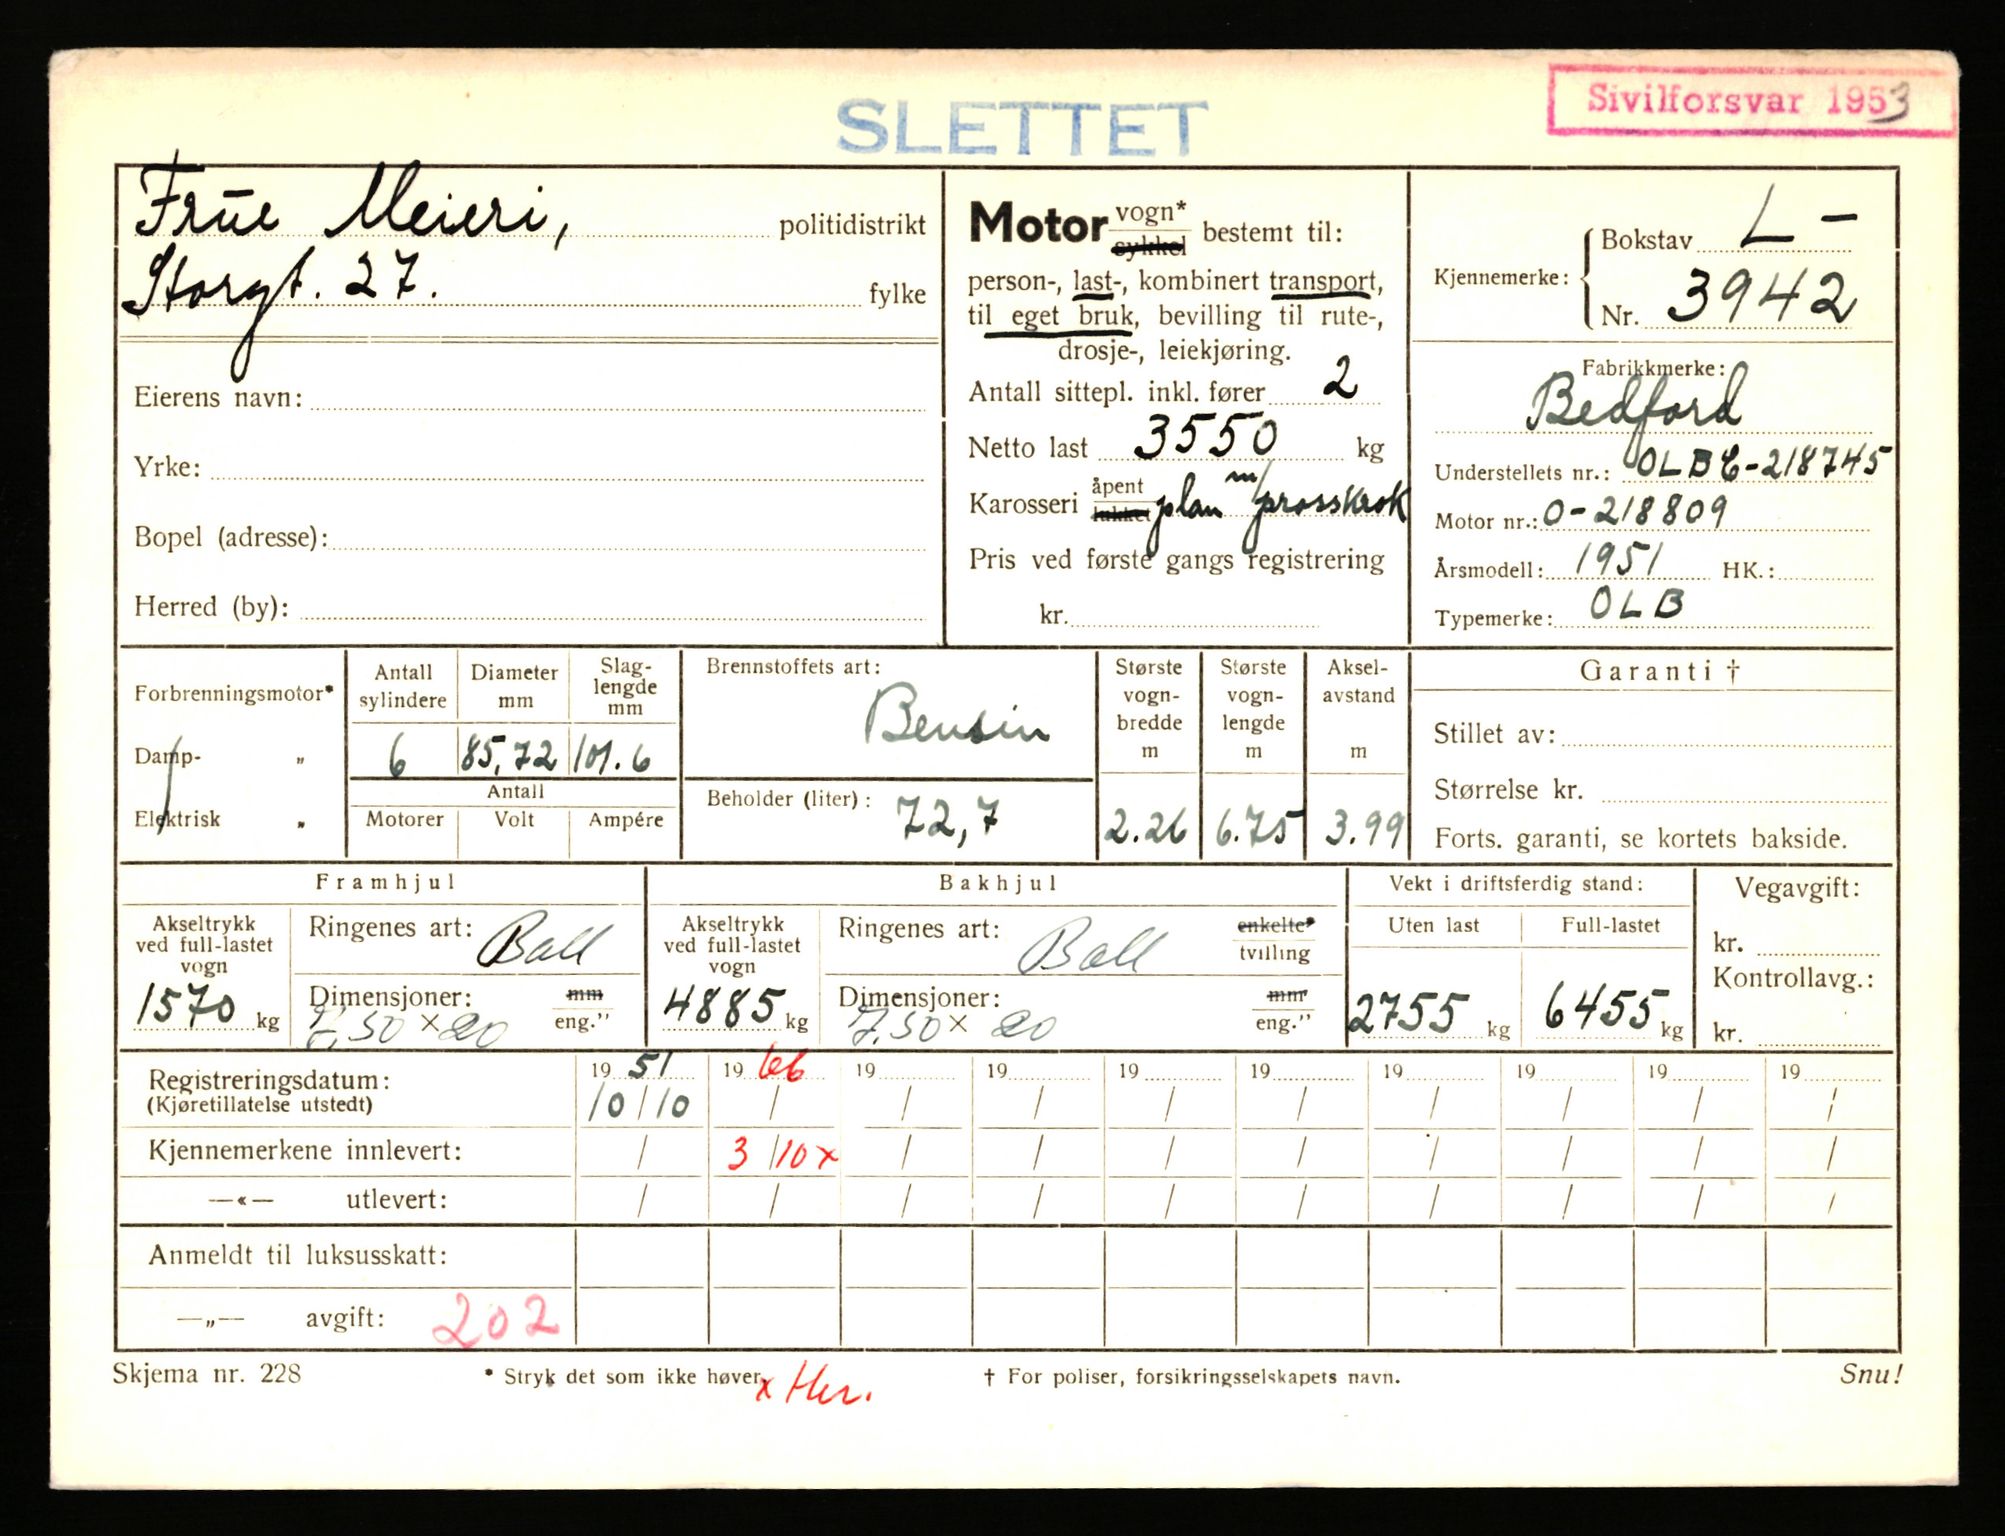 SLETTET
Sivilforsvar 1953
Frue Meieri, politidistrikt
Storgt. 27. fylke
Eierens navn:
Yrke:
Bopel (adresse):
Herred (by):
Motor vogn* sykkel bestemt til:
person-, last-, kombinert transport,
til eget bruk, bevilling til rute-,
drosje-, leiekjøring.
Antall sittepl. inkl. fører 2
Netto last 3550 kg
Karosseri åpent lukket plan m/prosskrok
Pris ved første gangs registrering
kr.
Kjennemerke: Bokstav L -
Nr. 3942
Fabrikkmerke:
Bedford
Understellets nr.: OLBC-218745
Motor nr.: O-218809
Årsmodell: 1951 HK.:
Typemerke: OLB
Forbrenningsmotor*
Damp- „
Elektrisk „
Antall sylindere Diameter mm Slag-lengde mm
6 85,72 101.6
Antall
Motorer Volt Ampére
Brennstoffets art:
Bensin
Beholder (liter): 72,7
Største vogn-bredde m Største vogn-lengde m Aksel-avstand m
2.26 6.75 3.99
Garanti †
Stillet av:
Størrelse kr.
Forts. garanti, se kortets bakside.
Framhjul
Akseltrykk ved full-lastet vogn
1570 kg
Ringenes art: Ball
Dimensjoner: mm eng."
7.50 × 20
Bakhjul
Akseltrykk ved full-lastet vogn
4885 kg
Ringenes art: Ball enkelte* tvilling
Dimensjoner: mm eng."
7.50 × 20
Vekt i driftsferdig stand:
Uten last Full-lastet
2755 kg 6455 kg
Vegavgift:
kr.
Kontrollavg.:
kr.
Registreringsdatum: 1951 1966 19 19 19 19 19 19 19 19
(Kjøretillatelse utstedt) 10/10 / / / / / / / / /
Kjennemerkene innlevert: / 3/10 x / / / / / / / /
—«— utlevert: / / / / / / / / / /
Anmeldt til luksusskatt:
—„— avgift: 202
Skjema nr. 228 * Stryk det som ikke høver. † For poliser, forsikringsselskapets navn. Snu!
x Her.